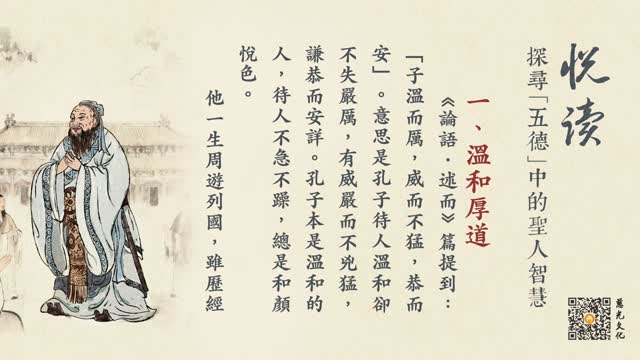 悦读
探尋「五德」中的聖人智慧
一、溫和厚道
《論語．述而》篇提到：
「子溫而厲，威而不猛，恭而
安」。意思是孔子待人溫和卻
不失嚴厲，有威嚴而不兇猛，
謙恭而安詳。孔子本是溫和的
人，待人不急不躁，總是和顏
悅色。
他一生周遊列國，雖歷經
慈光文化